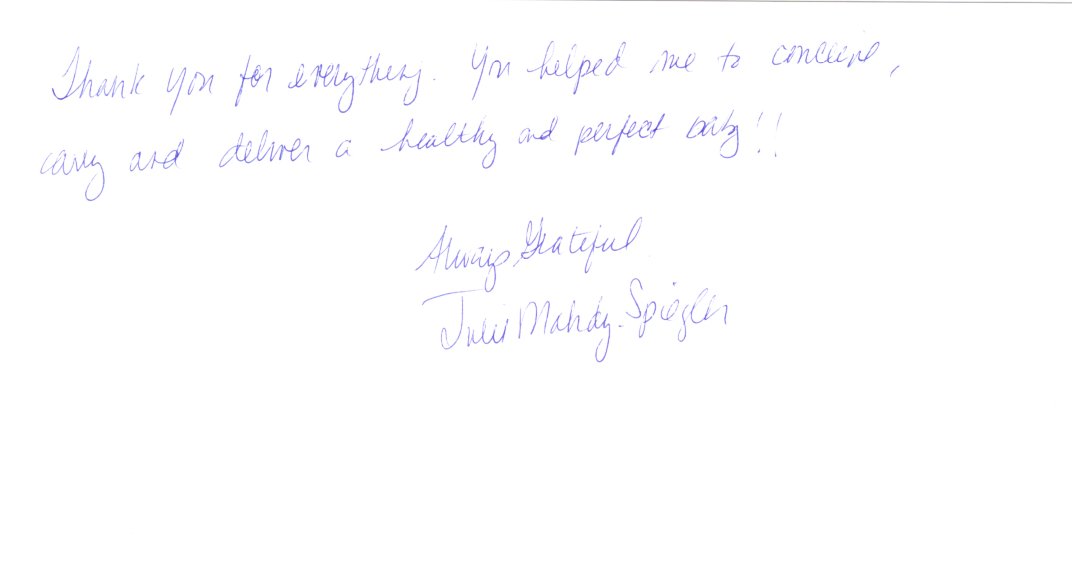 Thank you for everything. You helped me to conceive,
carry and deliver a healthy and perfect baby!!
Always Grateful
Julie Mahdy-Spiegler